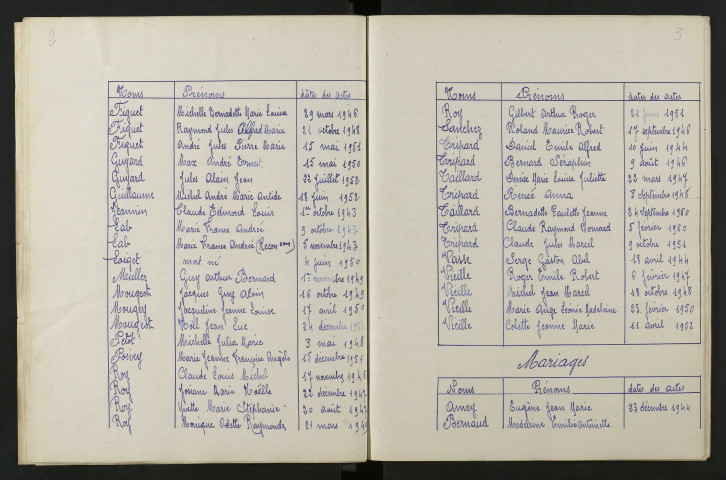 2
Noms Prénoms dates des actes
Figuet Michelle Bernadette Marie Louise 29 mars 1946
Figuet Raymond Jules Alfred Marie 21 octobre 1948
Figuet André Jules Pierre Marie 15 mai 1951
Guyard Max André Ernest 15 mai 1950
Guyard Jules Alain Jean 22 juillet 1952
Guillaume Michel André Marie Antide 18 juin 1952
Jeannin Claude Edmond Louis 1er octobre 1943
Lab Marie France Andrée 9 octobre 1943
Lab Marie France Andrée (Recon 6 novembre 1943
Loiget mort né 4 juin 1950
Muller Guy Arthur Bernard 15 novembre 1949
Mougeon Jacques Guy Alain 16 octobre 1949
Mougey Jacqueline Jeanne Louise 17 avril 1950
Mougeot Noël Jean Luc 24 décembre
Petot Michelle Julia Marie 3 mai 1948
Poivey Marie Jeanne Françoise 15 décembre 1951
Roy Claude Louis Michel 17 novembre 1946
Roy Josiane Marie Noëlle 22 décembre 1947
Roy Yvette Marie Stéphanie 20 août 1947
Roy Monique Odette Raymonde 21 mars 1949
3
Noms Prénoms dates des actes
Roy Gilbert Arthur Roger 21 juin 1951
Sanchez Roland Maurice Robert 17 septembre 1946
Tripard Daniel Emile Alfred 10 juin 1944
Tripard Bernard Séraphin 9 août 1946
Taillard Denise Marie Louise Juliette 22 mars 1947
Tripard Renée Anna 3 septembre 1948
Taillard Bernadette Paulette Jeanne 24 septembre 1950
Tripard Claude Raymond Bernard 5 février 1950
Tripard Claude Jules Marcel 9 octobre 1951
Vasse Serge Gaston Abel 18 avril 1944
Vieille Roger Emile Robert 6 février 1947
Vieille Michel Jean Marcel 18 octobre 1948
Vieille Marie Ange Léonie Madeleine 23 février 1950
Vieille Colette Jeanne Marie 11 avril 1952
Mariages
Noms Prénoms dates des actes
Amey Eugène Jean Marie 23 décembre 1944
Bernaud Madeleine Emilie Antoinette